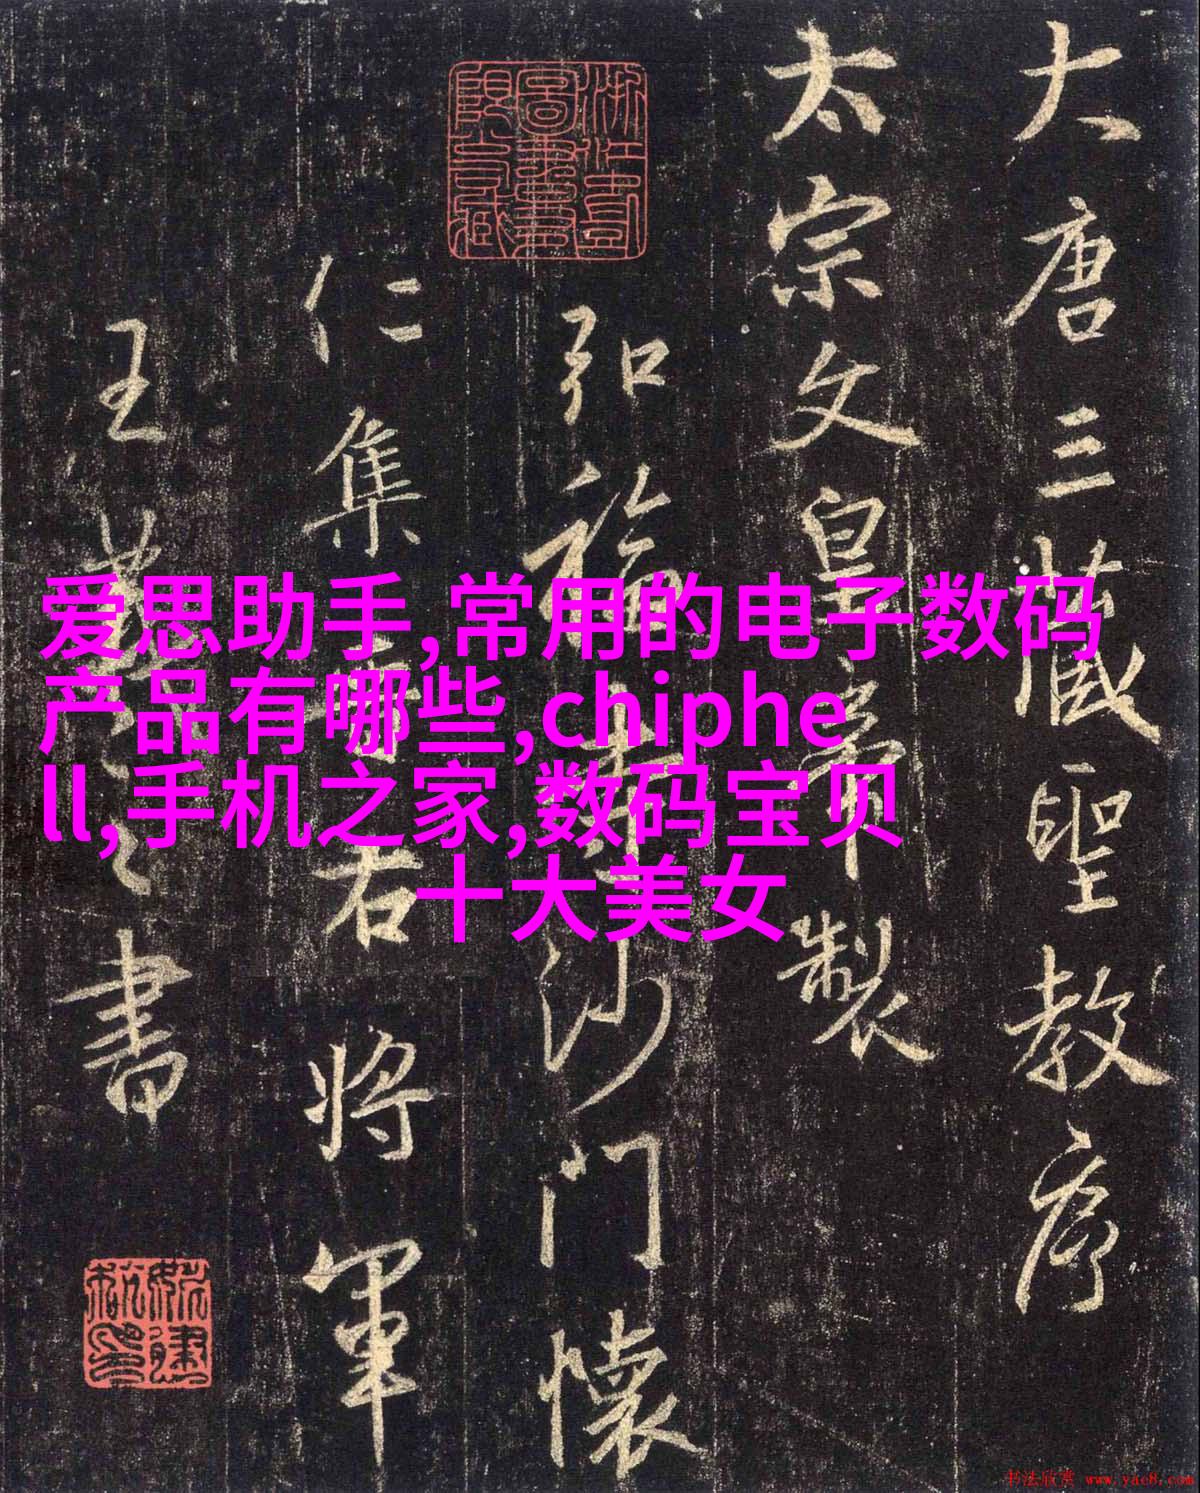 大唐三藏聖教序
太宗文皇帝製
弘福寺沙門懷
仁集晉右將軍
王羲之書
爱思助手,常用的电子数码
产品有哪些,chiphe
ll,手机之家,数码宝贝
十大美女
书法欣赏 www.yac8.com